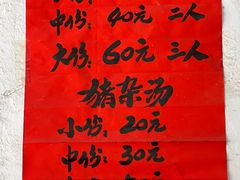 中份：40元 二人
大份：60元 三人
猪杂汤
小份：20元
中份：30元